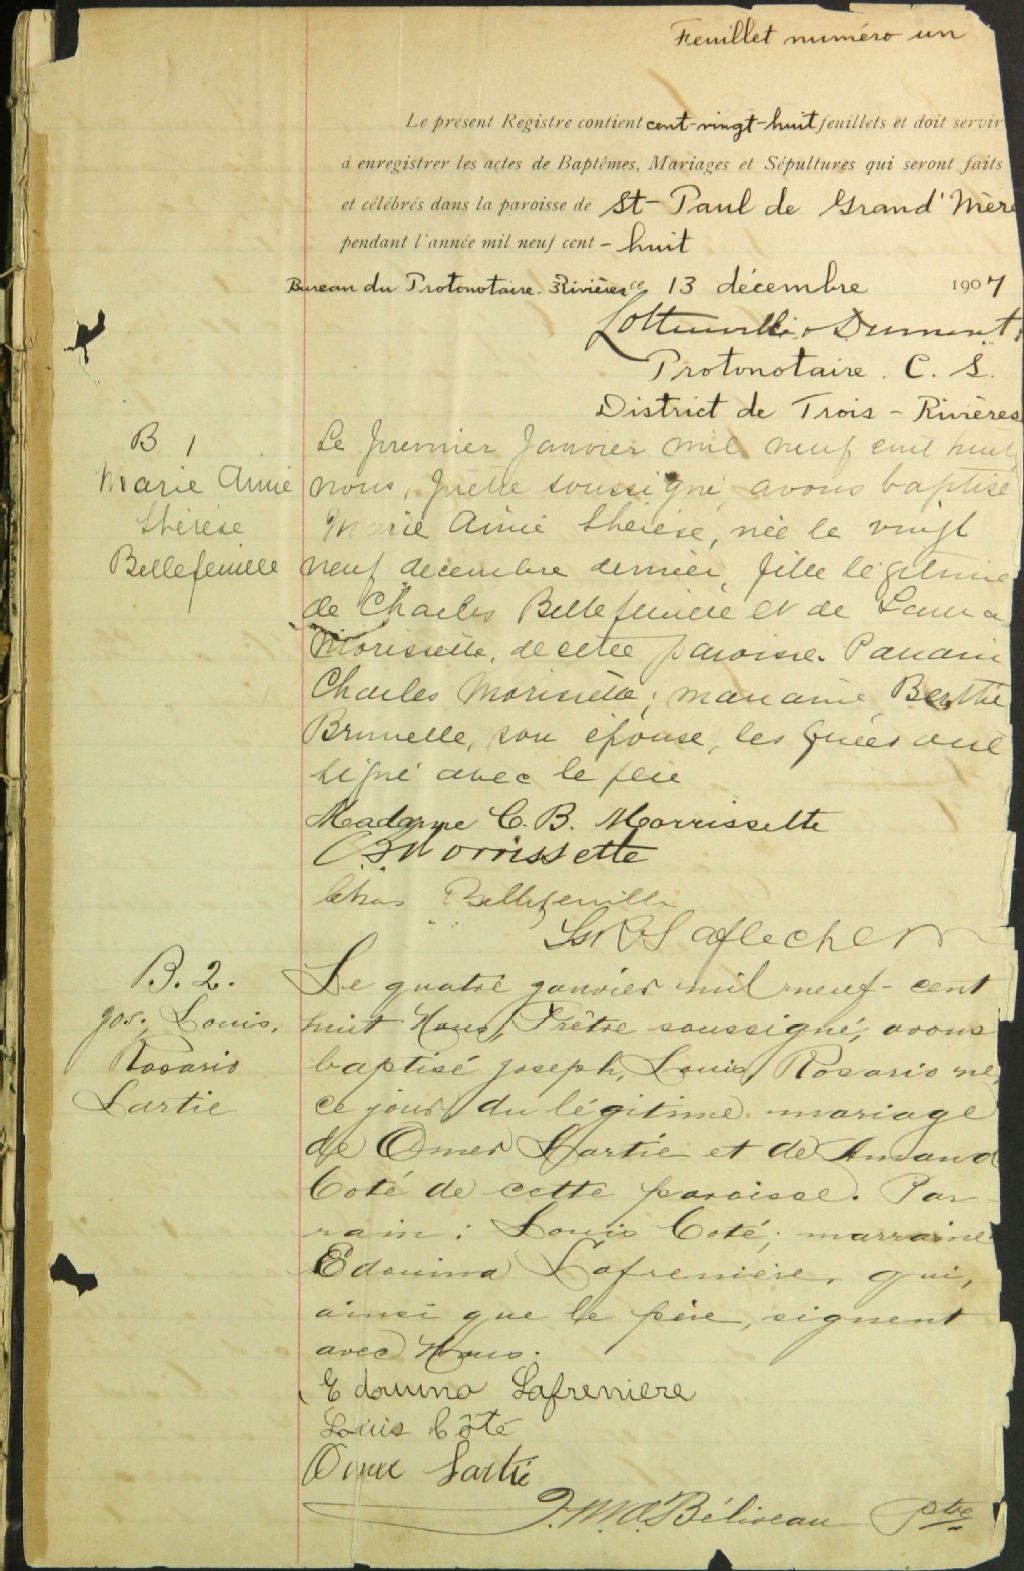 Feuillet numéro un
Le présent Registre contient cent-vingt-huit feuillets et doit servir
à enregistrer les actes de Baptêmes, Mariages et Sépultures qui seront faits
et célébrés dans la paroisse de St-Paul de Grand'Mère
pendant l'année mil neuf cent - huit
Bureau du Protonotaire. 3 Rivières ce 13 décembre 1907
Dumont
Protonotaire. C. S.
District de Trois-Rivières
B 1
Marie Aimé
Thérèse
Bellefeuille
Le premier Janvier mil neuf cent huit
nous, prêtre soussigné avons baptisé
Marie Aimé Thérèse, née le vingt
neuf decembre dernier, fille légitime
de Charles Bellefeuille et de Laura
Morissette, de cette paroisse. Parrain
Charles Morissette; marraine Berthe
Brunelle, son épouse, les quels ont
signé avec le père
Madame C. B. Morrissette
C. B. Morrissette
Chas Bellefeuille
Laflèche
B. 2.
Jos. Louis,
Rosario
Lartie
Le quatre janvier mil neuf-cent
huit Nous, Prêtre soussigné, avons
baptisé Joseph, Louis, Rosario né,
ce jour, du légitime mariage
de Omer Lartie et de Amanda
Coté de cette paroisse. Par-
rain: Louis Coté; marraine
Edouina Lafrenière, qui,
ainsi que le père, signent
avec Nous.
Edouina Lafreniere
Louis Côté
Omer Lartie
Béliveau Ptre